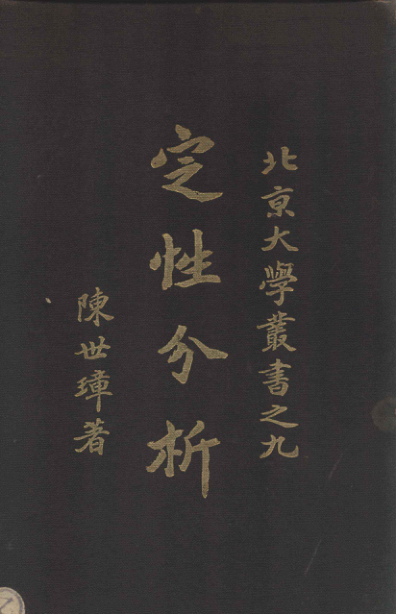 北京大學叢書之九
定性分析
陳世璋著